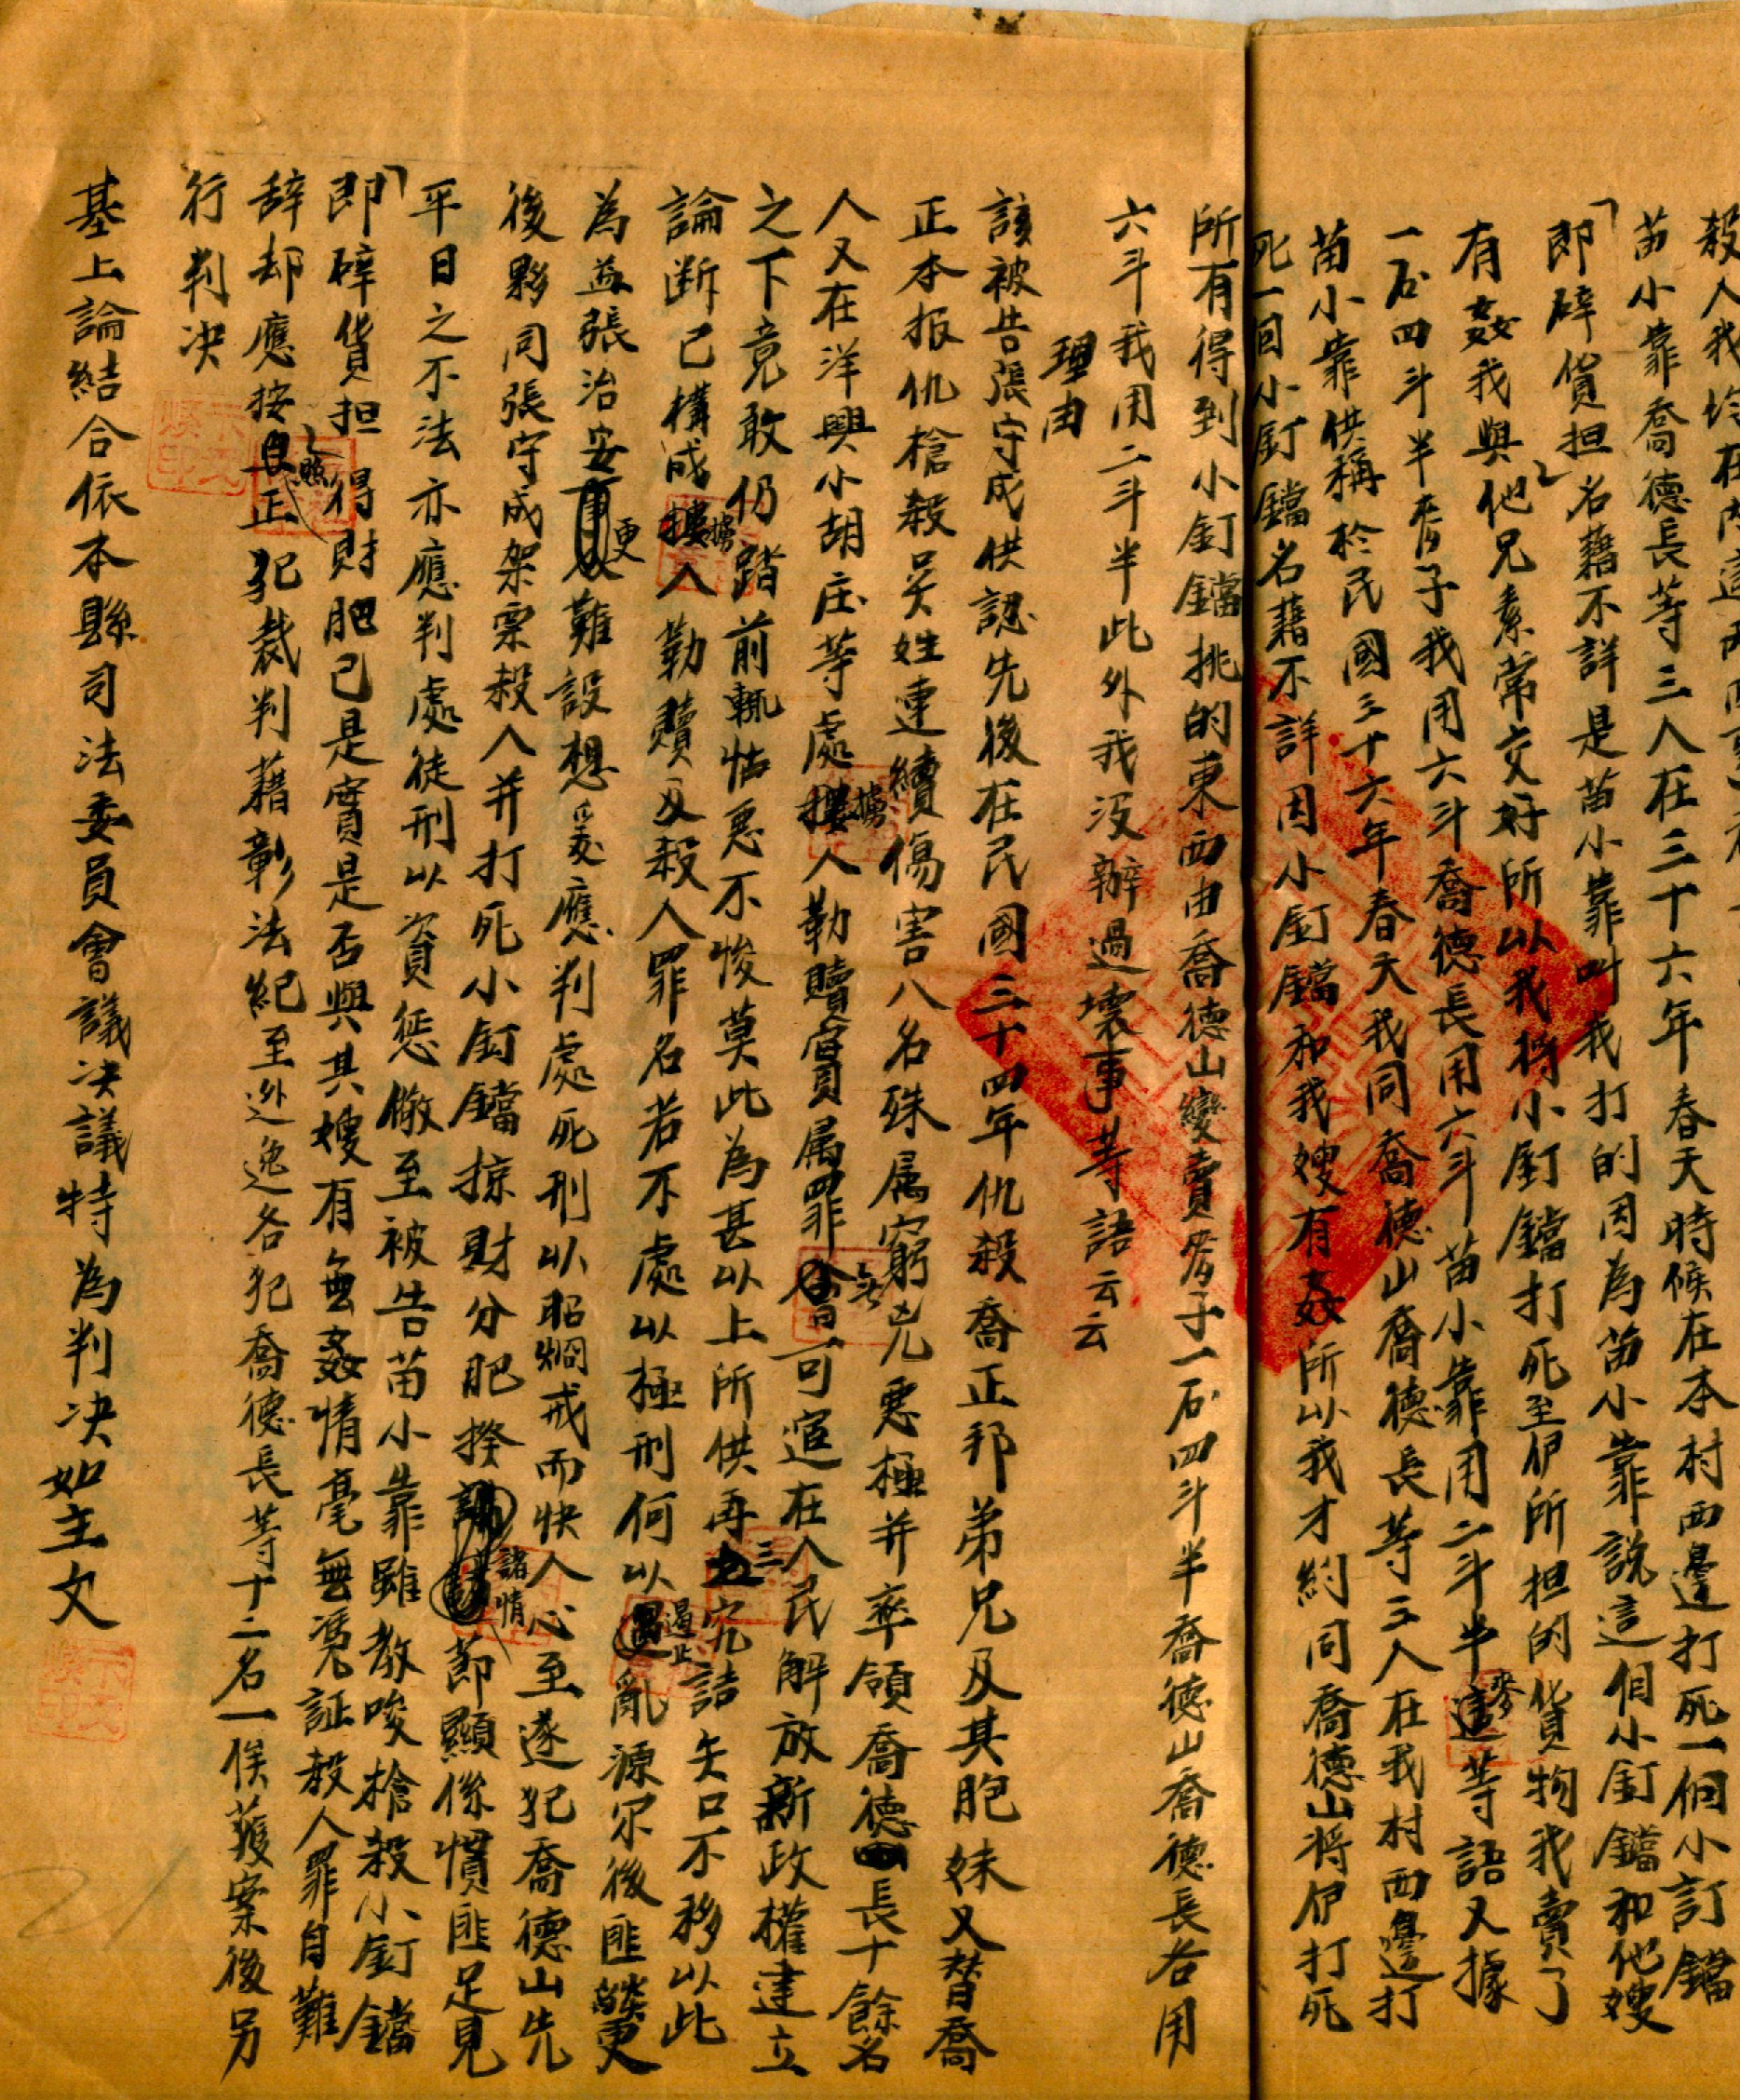 殺人我均在內這兩
苗小靠喬德長等三人在三十六年春天時候在本村西邊打死一個小訂鐺
即「碎貨担」名藉不詳是苗小靠叫我打的因為苗小靠說這個小釘鐺和他嫂
有姦我與他兄素常交好所以我將小釘鐺打死至伊所担的貨物我賣了
一石四斗半麦子我用六斗喬德長用六斗苗小靠用二斗半麥等語又據
苗小靠供稱於民國三十六年春天我同喬德山喬德長等三人在我村西邊打
死一回小釘鐺名藉不詳因小釘鐺和我嫂有姦所以我才約同喬德山將伊打死
所有得到小釘鐺挑的東西由喬德山變賣麦子一石四斗半喬德山喬德長各用
六斗我用二斗半此外我沒辦過壞事等語云云
理由
該被告張守成供認先後在民國三十四年仇殺喬正邦弟兄及其胞妹又替喬
正本报仇槍殺吳姓連續傷害八名殊属窮兇惡極并率領喬德長十餘名
人又在洋興小胡庄等處擄人勒贖實属罪無可逭在人民解放新政權建立
之下竟敢仍踏前輒怙惡不悛莫此為甚以上所供再三究詰矢口不移以此
論断已構成擄人勒贖及殺人罪名若不處以極刑何以遏止亂源尔後匪燄更
為益張治安更難設想爰應判處死刑以昭烱戒而快人心至逐犯喬德山先
後夥同張守成架票殺人并打死小釘鐺掠財分肥揆諸情節顯係慣匪足見
平日之不法亦應判處徒刑以資懲儆至被告苗小靠雖教唆槍殺小釘鐺
即「碎貨担」得財肥己是實是否與其嫂有無姦情毫無憑証殺人罪自難
辞却應按照正犯裁判藉彰法紀至外逃逸各犯喬德長等十二名一俟獲案後另
行判决
基上論結合依本縣司法委員會議决議特為判决如主文